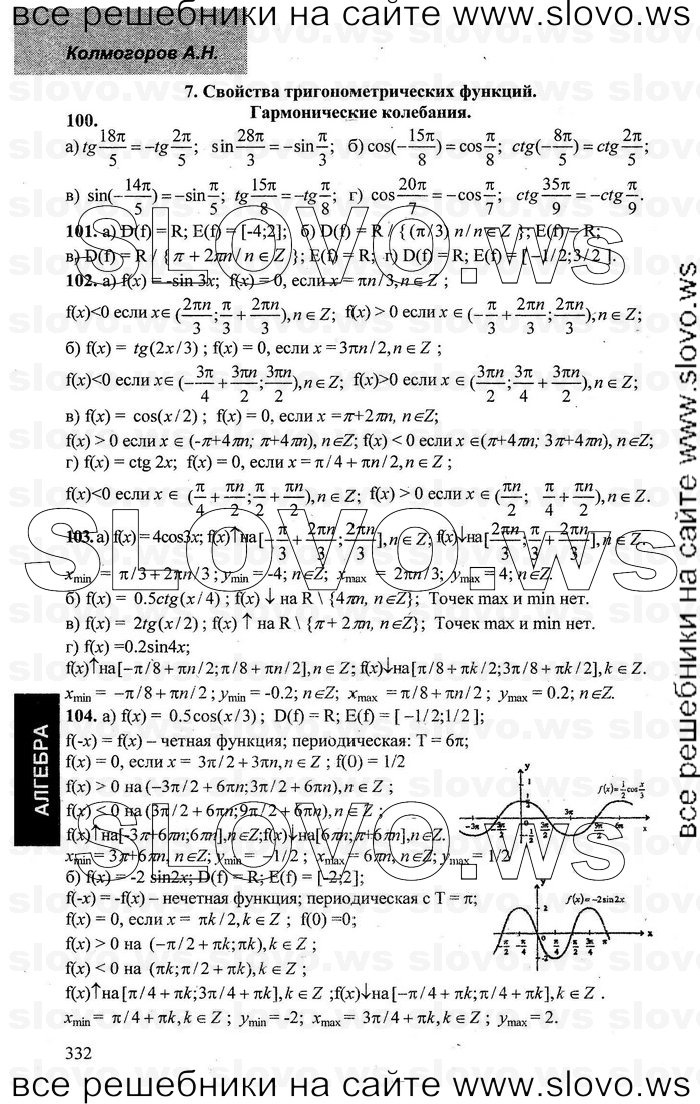 все решебники на сайте www.slovo.ws
Колмогоров А.Н.
7. Свойства тригонометрических функций.
Гармонические колебания.
100.
а) tg 18π/5 = –tg 2π/5; sin 28π/3 = –sin π/3; б) cos(–15π/8) = cos π/8; ctg(–8π/5) = ctg 2π/5;
в) sin(–14π/5) = –sin π/5; tg 15π/8 = –tg π/8; г) cos 20π/7 = –cos π/7; ctg 35π/9 = –ctg π/9.
101. а) D(f) = R; E(f) = [-4;2]; б) D(f) = R / { (π/3) n / n∈Z }; E(f) = R;
в) D(f) = R / { π + 2πn / n∈Z }; E(f) = R; г) D(f) = R; E(f) = [ –1/2;3/2 ].
102. а) f(x) = -sin 3x; f(x) = 0, если x = πn/3, n∈Z ;
f(x)<0 если x∈ (2πn/3; π/3 + 2πn/3), n∈Z; f(x) > 0 если x ∈ (–π/3 + 2πn/3; 2πn/3), n∈Z;
б) f(x) = tg(2x/3) ; f(x) = 0, если x = 3πn/2, n∈Z ;
f(x)<0 если x∈ (–3π/4 + 3πn/2; 3πn/2), n∈Z; f(x)>0 если x ∈ (3πn/2; 3π/4 + 3πn/2), n∈Z;
в) f(x) = cos(x/2) ; f(x) = 0, если x =π+2πn, n∈Z;
f(x) > 0 если x ∈ (-π+4πn; π+4πn), n∈Z; f(x) < 0 если x ∈(π+4πn; 3π+4πn), n∈Z;
г) f(x) = ctg 2x; f(x) = 0, если x = π/4 + πn/2, n∈Z ;
f(x)<0 если x ∈ (π/4 + πn/2; π/2 + πn/2), n∈Z; f(x) > 0 если x ∈ (πn/2; π/4 + πn/2), n∈Z.
103. а) f(x) = 4cos3x; f(x)↑на [–π/3 + 2πn/3; 2πn/3], n∈Z; f(x)↓на [2πn/3; π/3 + 2πn/3], n∈Z.
xmin = π/3 + 2πn/3 ; ymin = -4; n∈Z; xmax = 2πn/3; ymax = 4; n∈Z.
б) f(x) = 0.5ctg(x/4) ; f(x) ↓ на R \ {4πn, n∈Z}; Точек max и min нет.
в) f(x) = 2tg(x/2) ; f(x) ↑ на R \ {π + 2πn, n∈Z}; Точек max и min нет.
г) f(x) =0.2sin4x;
f(x)↑на[–π/8 + πn/2;π/8 + πn/2], n∈Z; f(x)↓на[π/8 + πk/2;3π/8 + πk/2], k∈Z.
xmin = –π/8 + πn/2 ; ymin = -0.2; n∈Z; xmax = π/8 + πn/2 ; ymax = 0.2; n∈Z.
104. а) f(x) = 0.5cos(x/3) ; D(f) = R; E(f) = [ –1/2;1/2 ];
f(-x) = f(x) – четная функция; периодическая: T = 6π;
f(x) = 0, если x = 3π/2 + 3πn, n∈Z ; f(0) = 1/2
f(x) > 0 на (–3π/2 + 6πn;3π/2 + 6πn), n∈Z ;
f(x) < 0 на (3π/2 + 6πn;9π/2 + 6πn), n∈Z ;
f(x)↑на[-3π+6πn;6πn], n∈Z;f(x)↓на[6πn;π+6πn], n∈Z.
xmin = 3π+6πn, n∈Z; ymin = –1/2 ; xmax = 6πn, n∈Z; ymax = 1/2
f(x)=1/2 cos x/3
б) f(x) = -2 sin2x; D(f) = R; E(f) = [-2;2];
f(-x) = -f(x) – нечетная функция; периодическая с T = π;
f(x) = 0, если x = πk/2, k∈Z ; f(0) =0;
f(x) > 0 на (–π/2 + πk;πk), k∈Z ;
f(x) < 0 на (πk;π/2 + πk), k∈Z ;
f(x)↑на[π/4 + πk;3π/4 + πk], k∈Z ;f(x)↓на[–π/4 + πk;π/4 + πk], k∈Z .
xmin = π/4 + πk, k∈Z ; ymin = -2; xmax = 3π/4 + πk, k∈Z ; ymax = 2.
f(x)=–2sin2x
АЛГЕБРА
332
SLOVO.ws
SLOVO.ws
SLOVO.ws
все решебники на сайте www.slovo.ws
все решебники на сайте www.slovo.ws